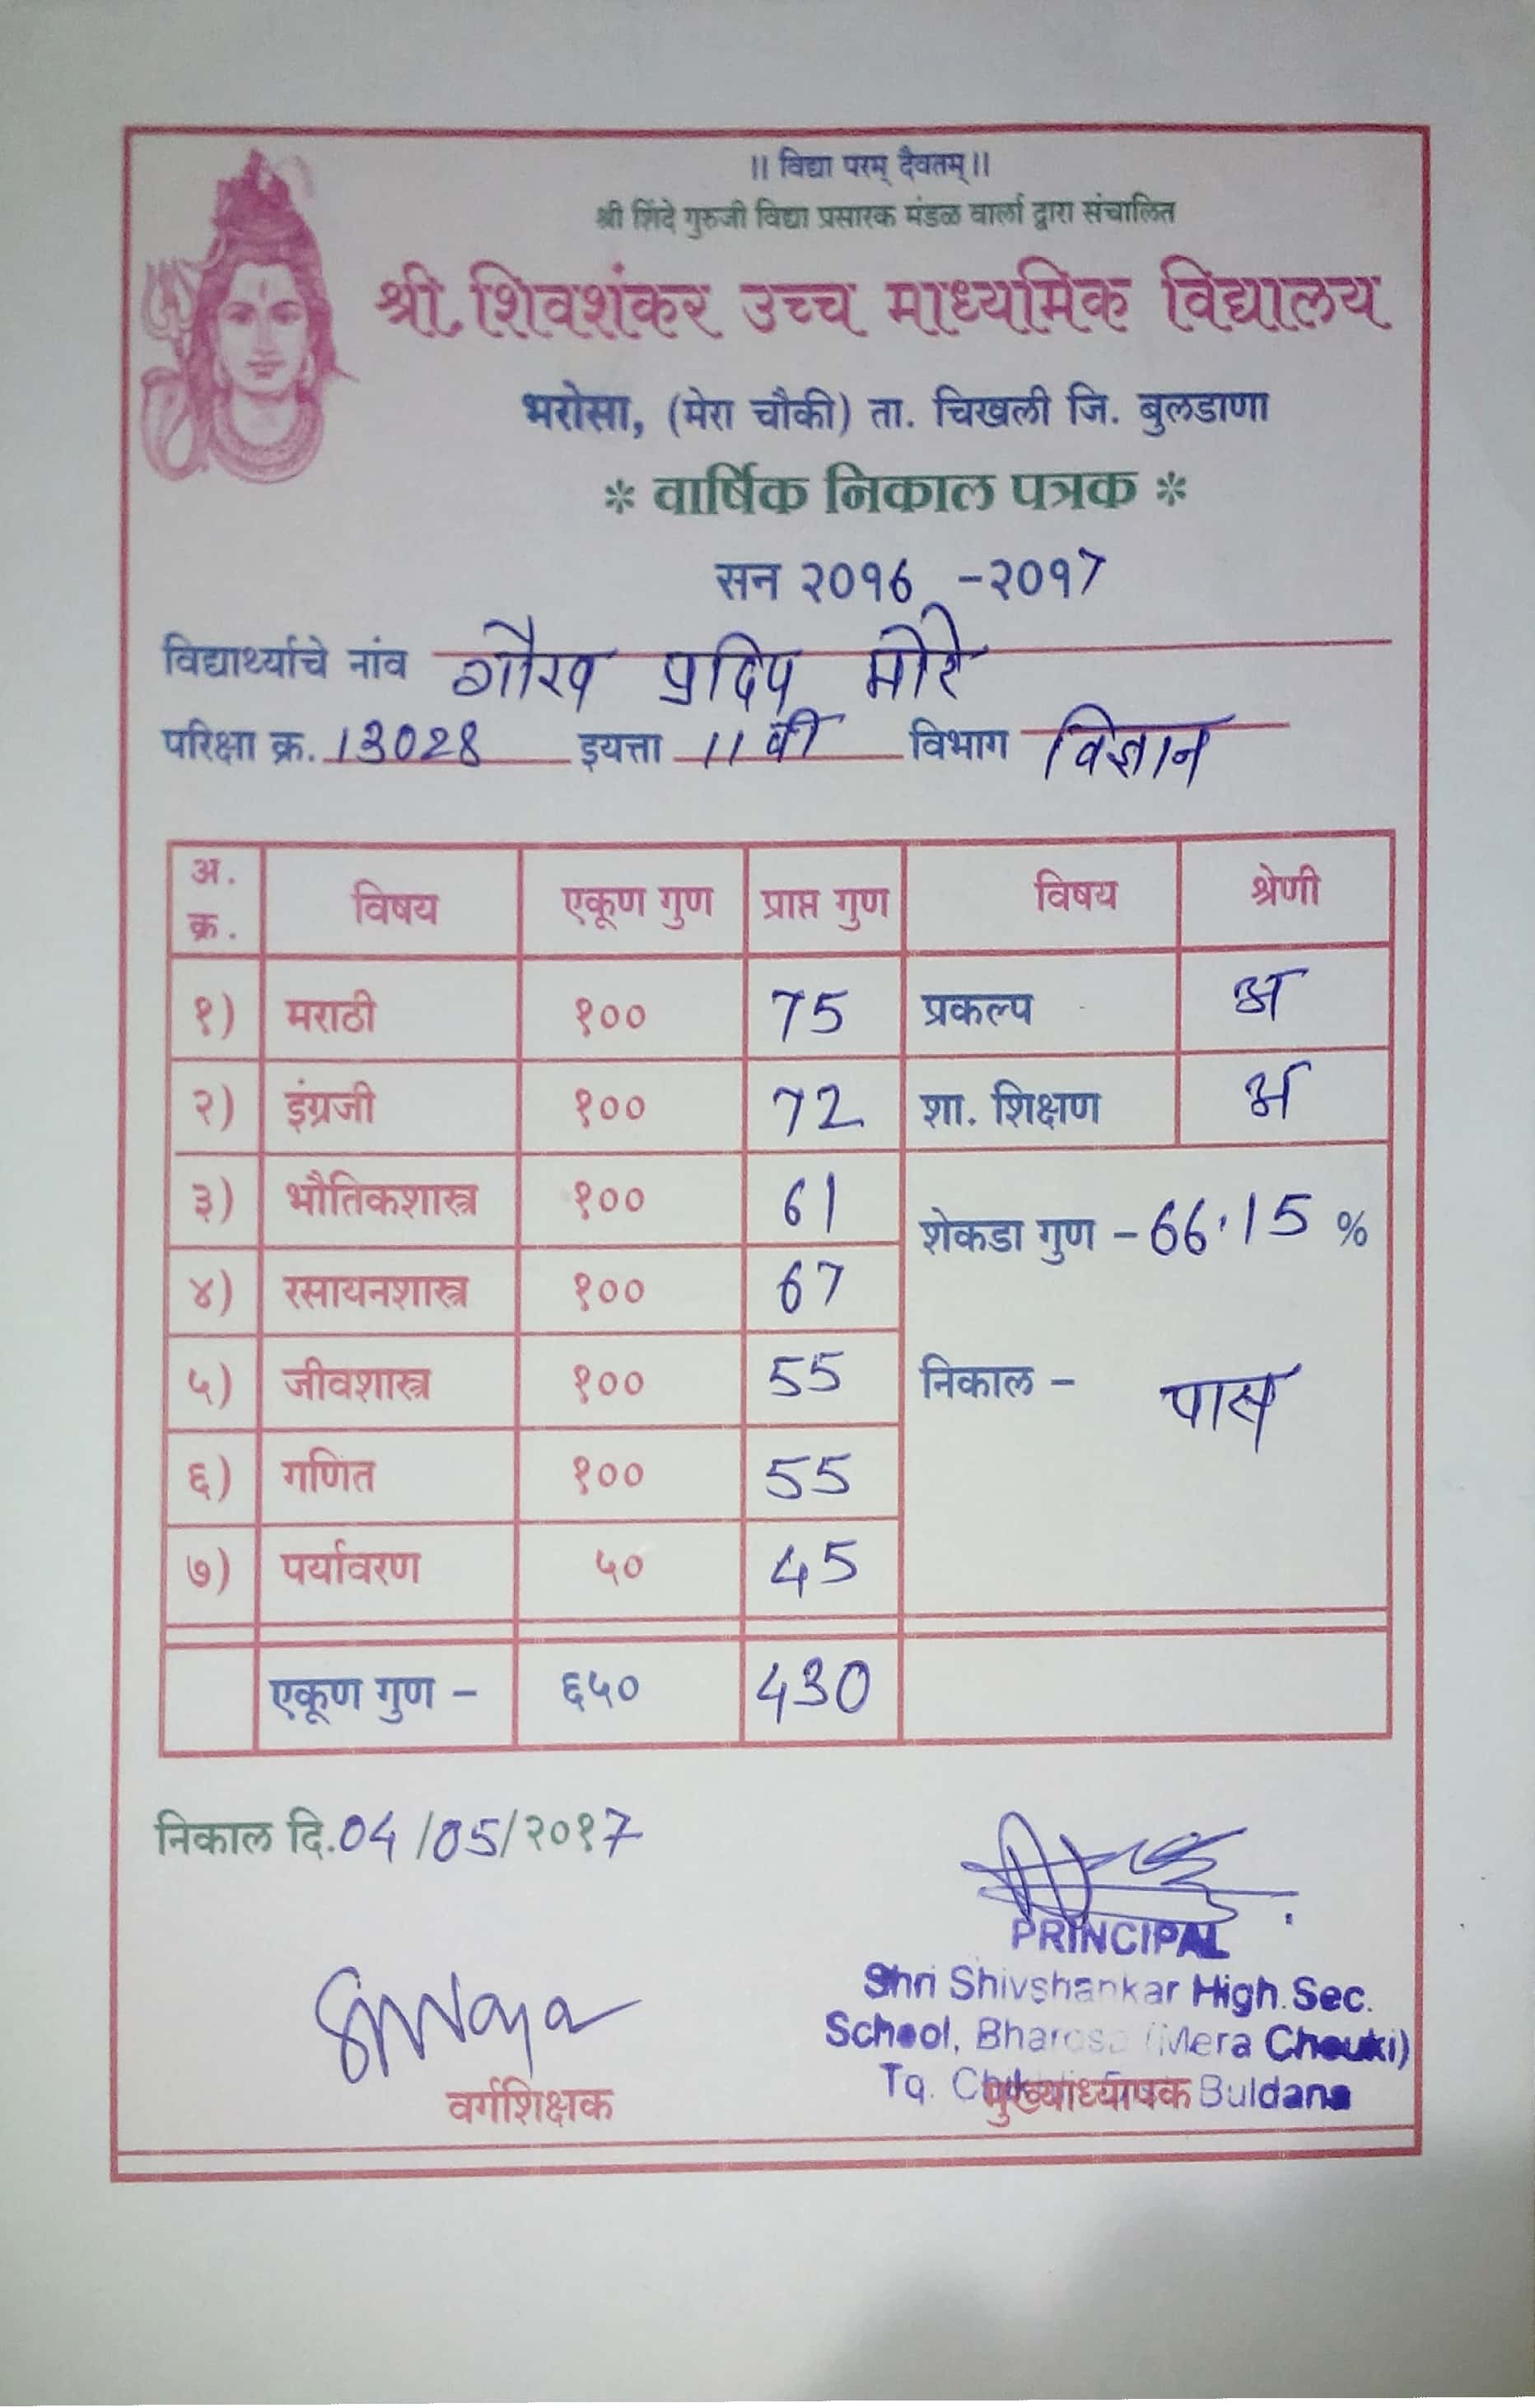 ॥ विद्या परम् दैवतम् ॥
श्री शिंदे गुरुजी विद्या प्रसारक मंडळ वार्ला द्वारा संचालित
श्री. शिवशंकर उच्च माध्यमिक विद्यालय
भरोसा, (मेरा चौकी) ता. चिखली जि. बुलडाणा
* वार्षिक निकाल पत्रक *
सन २०१६ -२०१७
विद्यार्थ्याचे नांव गौरव प्रदिप मोरे
परिक्षा क्र. 13028 इयत्ता 11 वी विभाग विज्ञान
अ. क्र. विषय एकूण गुण प्राप्त गुण विषय श्रेणी
१) मराठी १०० 75 प्रकल्प अ
२) इंग्रजी १०० 72 शा. शिक्षण अ
३) भौतिकशास्त्र १०० 61 शेकडा गुण - 66.15 %
४) रसायनशास्त्र १०० 67
५) जीवशास्त्र १०० 55 निकाल - पास
६) गणित १०० 55
७) पर्यावरण ५० 45
एकूण गुण - ६५० 430
निकाल दि. 04/05/२०१7
PRINCIPAL
Shri Shivshankar High. Sec.
School, Bharosa (Mera Chouki)
Tq. Buldana
वर्गशिक्षक मुख्याध्यापक